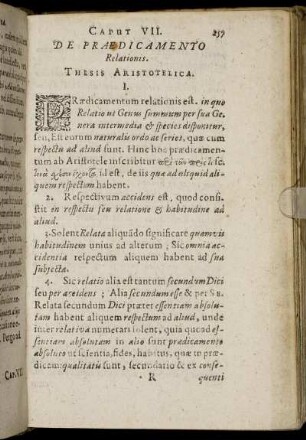 CAPUT VII. 257
DE PRÆDICAMENTO
Relationis.
THESIS ARISTOTELICA.
I.
PRædicamentum relationis est. in quo
Relatio ut Genus summum per sua Ge-
nera intermedia & species disponitur,
seu, Est eorum naturalis ordo ac series, quæ cum
respectu ad aliud sunt. Hinc hoc prædicamen-
tum ab Aristotele inscribitur
id est, de iis quæ ad aliquid ali-
quem respectum habent.
2. Respectivum accidens est, quod consi-
stit in respectu seu relatione & habitudine ad
aliud.
3. Solent Relata aliquādo significare quamvis
habitudinem unius ad alterum; Sic omnia ac-
cidentia respectum aliquem habent ad sua
subjecta.
4. Sic relatio alia est tantum secundum Dici
seu per accidens; Alia secundum esse & per se.
Relata secundum Dici præter essentiam absolu-
tam habent aliquem respectum ad aliud, unde
inter relativa numerari solent, quia quoad es-
sentiam absolutam in alio sunt prædicamento
absoluto ut scientia, fides, habitus, quæ in præ-
dicam: qualitatis sunt, secundario & ex conse-
R quenti